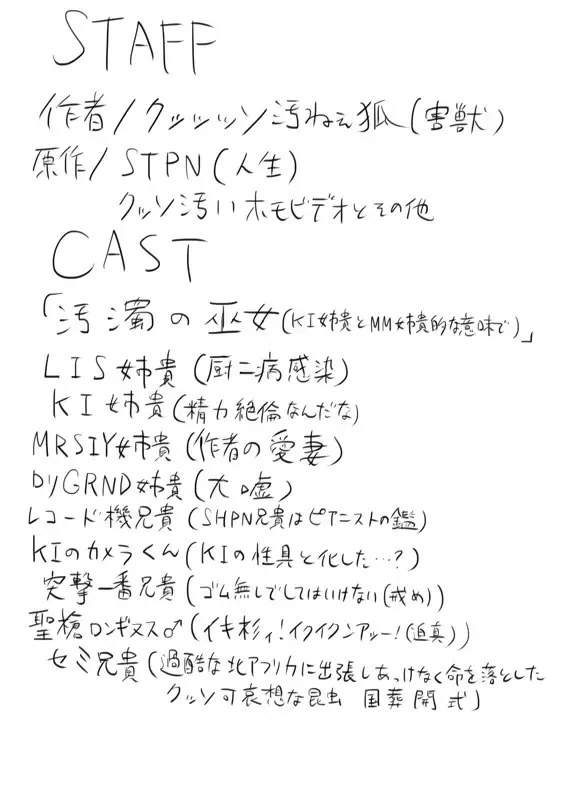 STAFF
作者/クッッッソ汚ねぇ狐(害獣)
原作/STPN(人生)
クッソ汚いホモビデオとその他
CAST
「汚濁の巫女(KI姉貴とMM姉貴的な意味で)」
LIS姉貴(厨二病感染)
KI姉貴(精力絶倫なんだな)
MRSIY姉貴(作者の愛妻)
DYGRND姉貴(大嘘)
レコード機兄貴(SHPN兄貴はピアニストの鑑)
KIのカメラくん(KIの性具と化した…?)
突撃一番兄貴(ゴム無しでしてはいけない(戒め))
聖槍ロンギヌス♂(イキ杉ィ!イクイクンアッー!(迫真))
セミ兄貴(過酷な北アフリカに出張しあっけなく命を落とした
クッソ可哀想な昆虫 国葬開式)